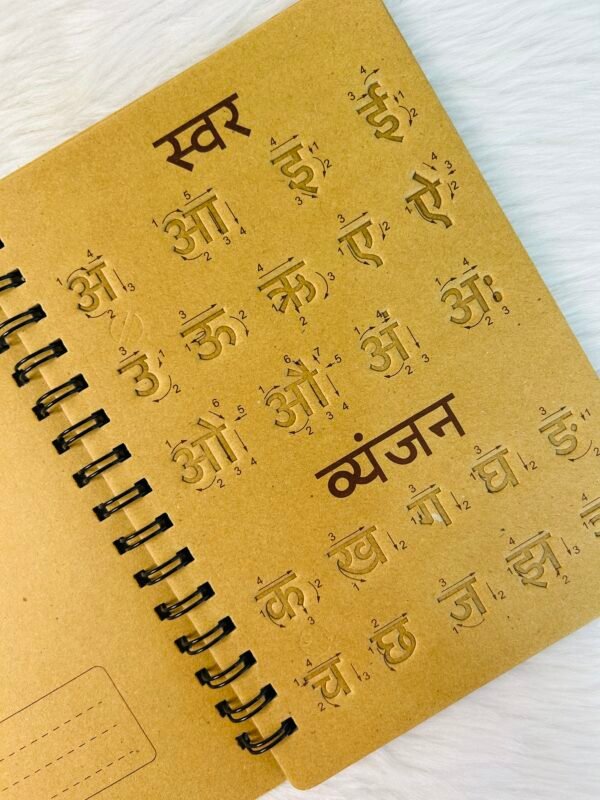 स्वर
अ आ इ ई
उ ऊ ऋ ए ऐ
ओ औ अं अः
व्यंजन
क ख ग घ ङ
च छ ज झ